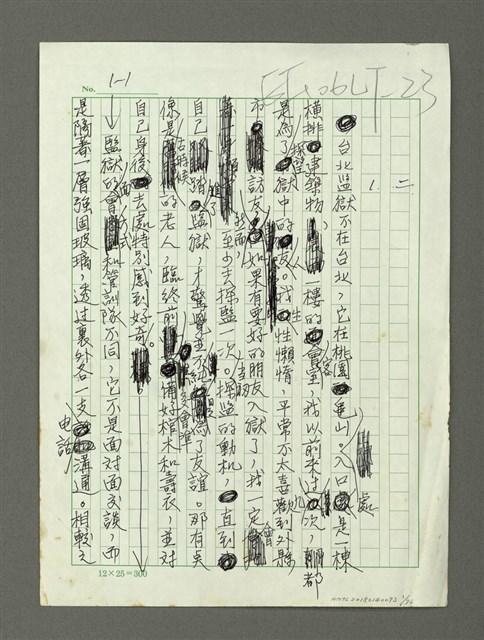 No. 1-1
台北監獄不在台北，它在桃園龜山。入口處是一棟
橫排建築物，一樓的會客室，我以前來過九次，都
是為了探望獄中的朋友。我生性懶惰，平常不太喜歡到外縣
市訪友，如果有要好的朋友入獄了，我一定會
至少去探監一次。探監的動機，一直到
自己踏進了監獄，才驚覺並不全為了友誼。那有點
像是老的時候的老人，臨終前會準備好棺木和壽衣，並對
自己身後去處特別感到好奇。
監獄的會面方式和管訓隊不同，它不是面對面交談，而
是隔著一層強固玻璃，透過裏外各一支電話溝通。相較之
12×25=300